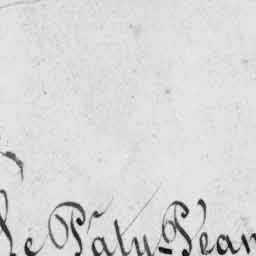 Le Paty-Péan